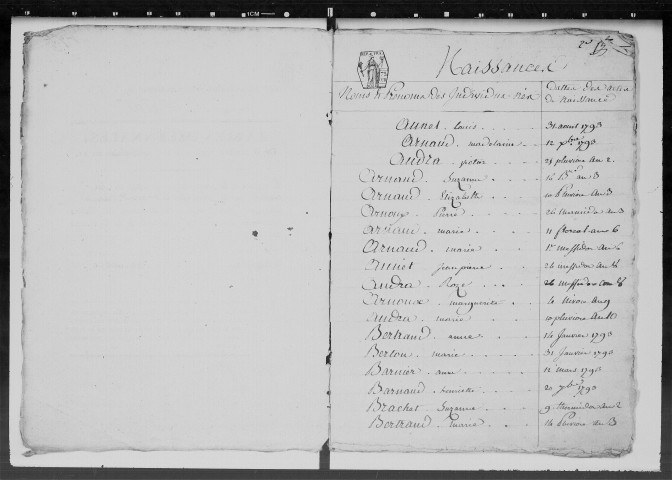 Naissances
Noms et Prénoms des Individus nés
Dattes des actes de Naissance
Louis 31 aout 1793
Arnaud madelaine 12 7bre 1793
Audra 24 pluviose an 2
Arnaud Suzanne an 3
Arnaud Elizabeth 10 Pluviose an 3
Arnoux Pierre 26 thermidor an 3
marie 11 floreal an 6
Arnaud marie 1er messidor an 6
26 messidor an 8
Audra Roze 26 messidor an 8
Arnoux marguerite 4 Nivose an 9
Audra marie 10 pluviose an
Bertrand anne 14 Janvier 1793
Berton marie 31 Janvier 1793
Barnier anne 12 mars 1793
Barnaud henriette 20 7bre 1793
Brachet Suzanne 9 thermidor an 2
Bertrand marie 14 Pluviose an 3